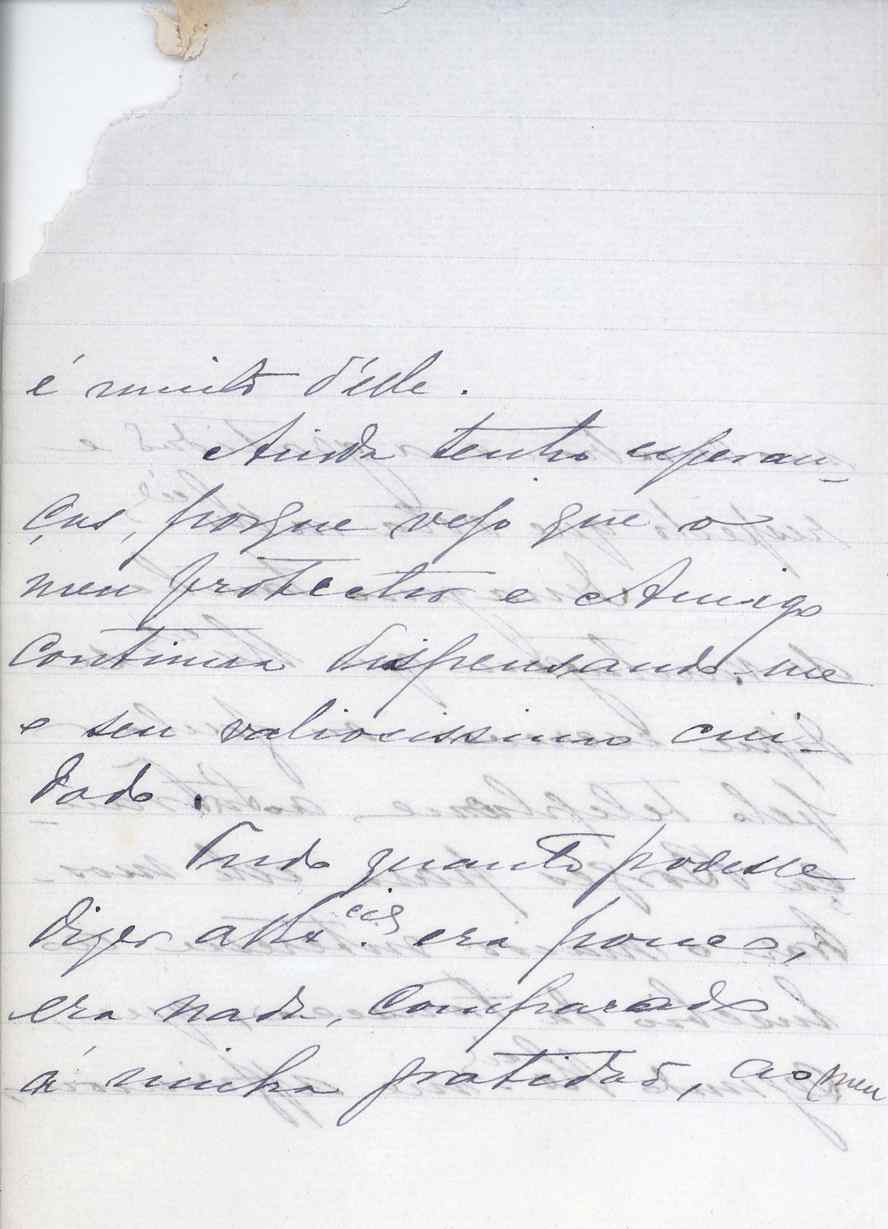 é muito d'elle.
Ainda tenho esperan-
ças, porque vejo que o
meu protector e Amigo
continua dispensando-me
o seu valiosissimo cui-
dado.
Tudo quanto podesse
dizer a V. Ex.cia era pouco,
era nada, comparado
á minha gratidão, ao meu